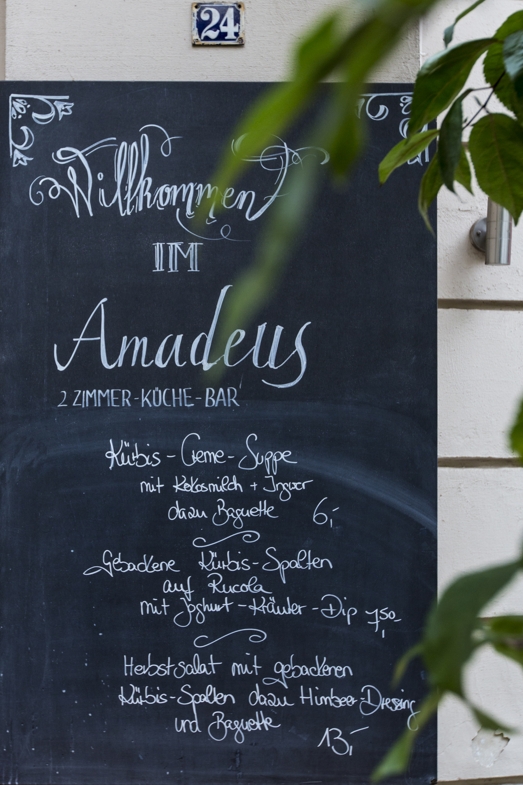 24
Willkommen
IM
Amadeus
2 ZIMMER-KÜCHE-BAR
Kürbis-Creme-Suppe
mit Kokosmilch + Ingwer
dazu Baguette 6,-
Gebackene Kürbis-Spalten
auf Rucola
mit Joghurt-Kräuter-Dip 7,50
Herbstsalat mit gebackenen
Kürbis-Spalten dazu Himbeer-Dressing
und Baguette
13,-